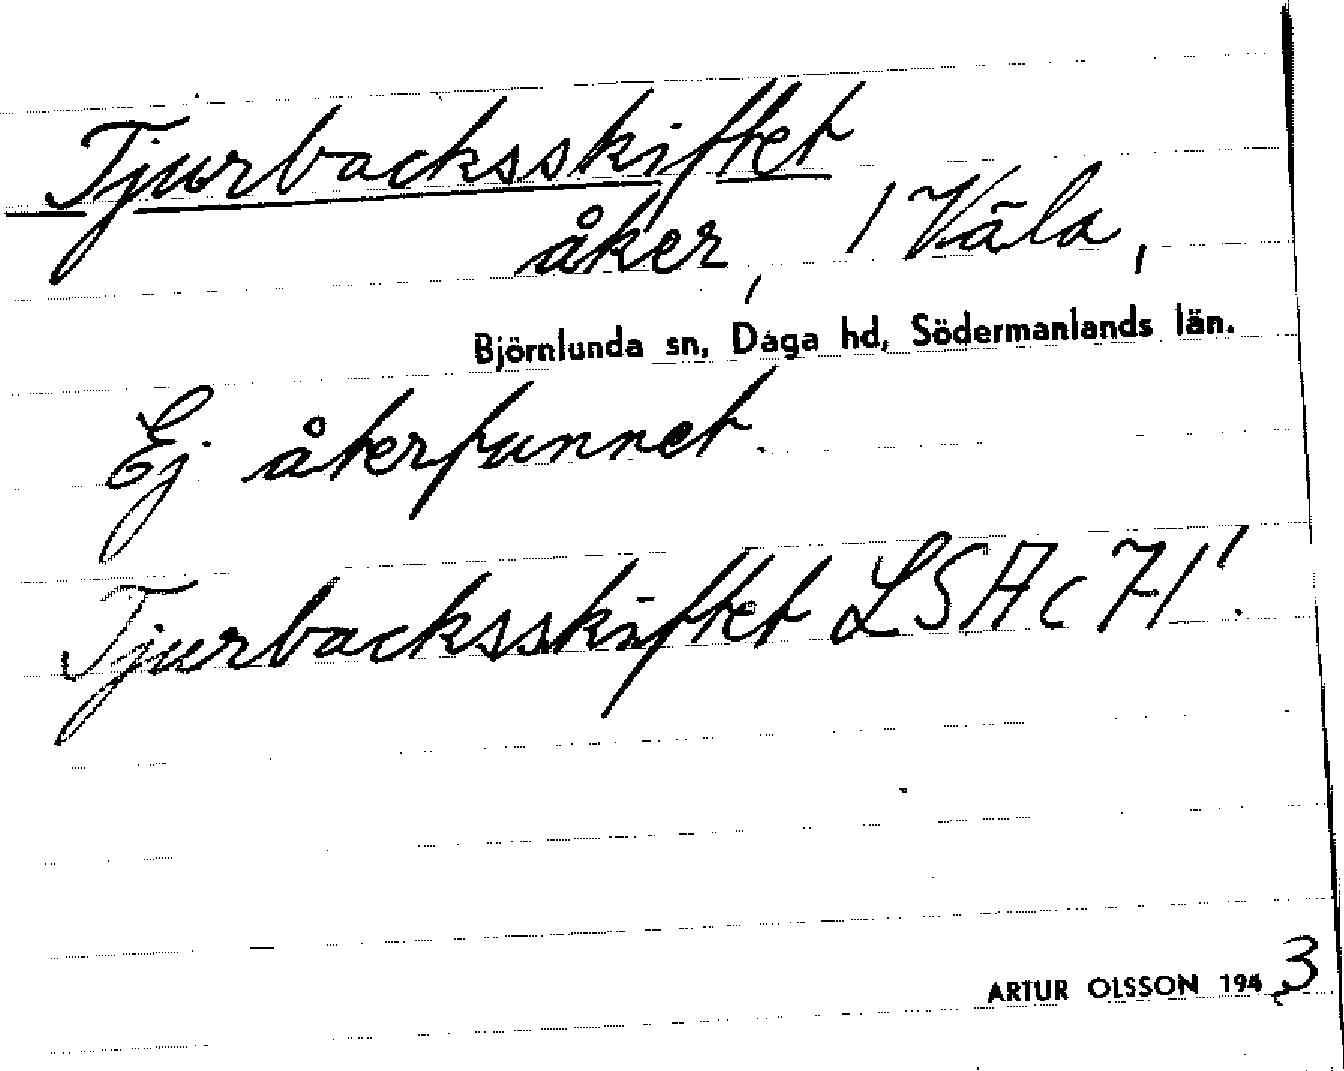 Tjurbacksskiftet
åker, / Väla,
Björnlunda sn, Daga hd, Södermanlands län.
Ej återfunnet.
Tjurbacksskiftet LSA c 71'.
ARTUR OLSSON 1943